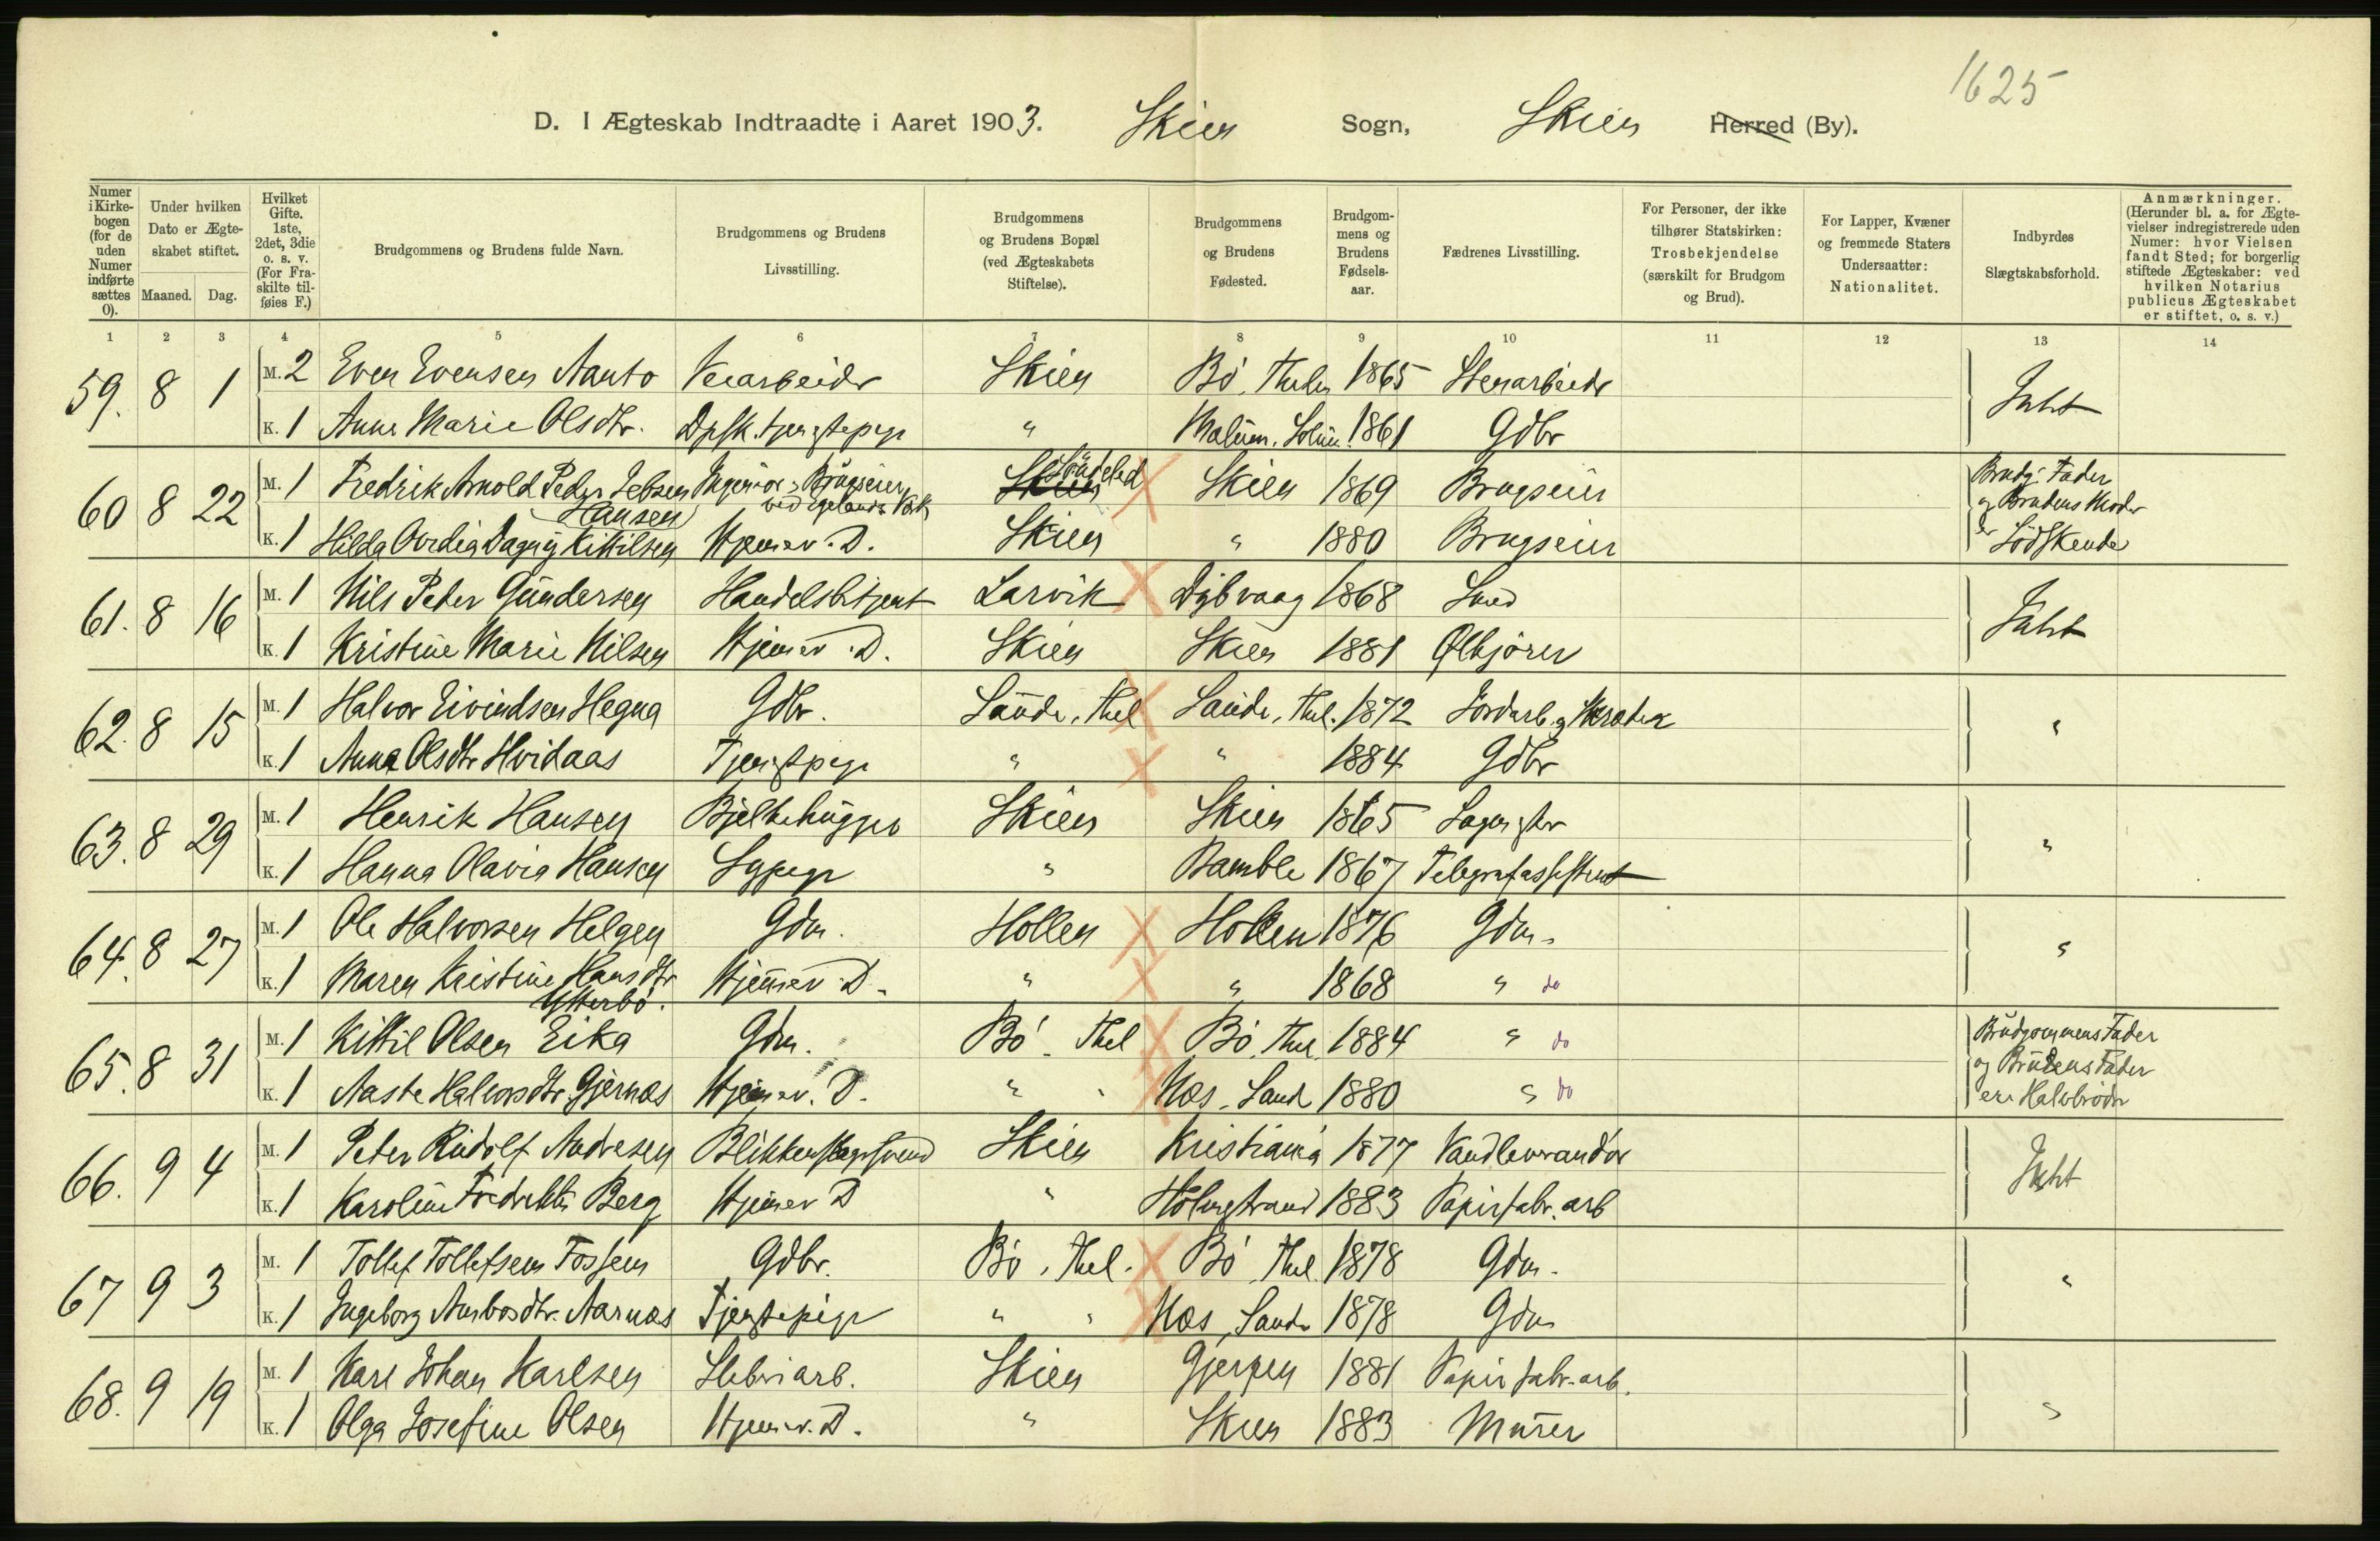 1625
D. I Ægteskab Indtraadte i Aaret 1903. Skien Sogn, Skien Herred (By).
Numer i Kirkebogen (for de uden Numer indførte sættes 0).
Under hvilken Dato er Ægteskabet stiftet.
Maaned. Dag.
Hvilket Gifte. 1ste, 2det, 3die o. s. v. (For Fraskilte tilføies F.)
Brudgommens og Brudens fulde Navn.
Brudgommens og Brudens Livsstilling.
Brudgommens og Brudens Bopæl (ved Ægteskabets Stiftelse).
Brudgommens og Brudens Fødested.
Brudgommens og Brudens Fødselsaar.
Fædrenes Livsstilling.
For Personer, der ikke tilhører Statskirken: Trosbekjendelse (særskilt for Brudgom og Brud).
For Lapper, Kvæner og fremmede Staters Undersaatter: Nationalitet.
Indbyrdes Slægtskabsforhold.
Anmærkninger. (Herunder bl. a. for Ægtevielser indregistrerede uden Numer: hvor Vielsen fandt Sted; for borgerlig stiftede Ægteskaber: ved hvilken Notarius publicus Ægteskabet er stiftet, o. s. v.)
1 2 3 4 5 6 7 8 9 10 11 12 13 14
59. 8 1 M. 2 Even Evensen Aanto Veiarbeidr Skien Bö, Thelm 1865 Stenarbeidr Intet
K. 1 Anne Marie Olsdtr. tjenestepige " Melum, Solum 1861 Gdbr
60 8 22 M. 1 Fredrik Arnold Peder Jebsen Hansen Ingeniör, Brugseier ved Egelands Værk Skien Söndeled Skien 1869 Brugseier Brudg. Fader og Brudens Moder er Södskende
K. 1 Hilda Ovedia Dagny Kittilsen Hjemmev. D. Skien " 1880 Brugseier
61. 8 16 M. 1 Nils Peter Gundersen Handelsbetjent Larvik Dybvaag 1868 Smed Intet
K. 1 Kristine Marie Nilsen Hjemmev. D. Skien Skien 1881 Ølkjörer
62. 8 15 M. 1 Halvor Eivindsen Hegna Gdbr. Saude, Thel Saude, Thel. 1872 Jordarb. og "
K. 1 Anna Olsdtr Hvidaas Tjenestpige " " 1884 Gdbr
63. 8 29 M. 1 Henrik Hansen Bjelkehugger Skien Skien 1865 "
K. 1 Hanna Olavia Hansen Sypige " Bamble 1867 Telegrafassistent
64. 8 27 M. 1 Ole Halvorsen Helgen Gdm. Hollen Hollen 1876 Gdm. "
K. 1 Maren Kristine Hansdtr Ytterbö. Hjemmev. D. " " 1868 " do
65. 8 31 M. 1 Kittil Olsen Eika Gdm. Bö. Thel Bö, Thel 1884 " do Brudgommens Fader og Brudens Fader ere Halvbrödre
K. 1 Aaste Halvorsdtr. Gjernæs Hjemmev. D. " " Næs, Saude 1880 " do
66. 9 4 M. 1 Peter Rudolf Andresen Blikkenslagersvend Skien Kristiania 1877 Intet
K. 1 Karoline Fredrikke Berg Hjemmev D " Holmestrand 1883 Papirfabr. arb
67 9 3 M. 1 Tollef Tollefsen Fossem Gdbr. Bö, Thel. Bö Thel. 1878 Gdm. "
K. 1 Ingeborg Aarnæs Tjenstepige " " Næs, Saude 1878 Gdm
68. 9 19 M. 1 Karl Johan Karlsen Sliberiarb. Skien Gjerpen 1881 Papirfabr. arb. "
K. 1 Olga Josefine Olsen Hjemmev. D. " Skien 1883 Murer